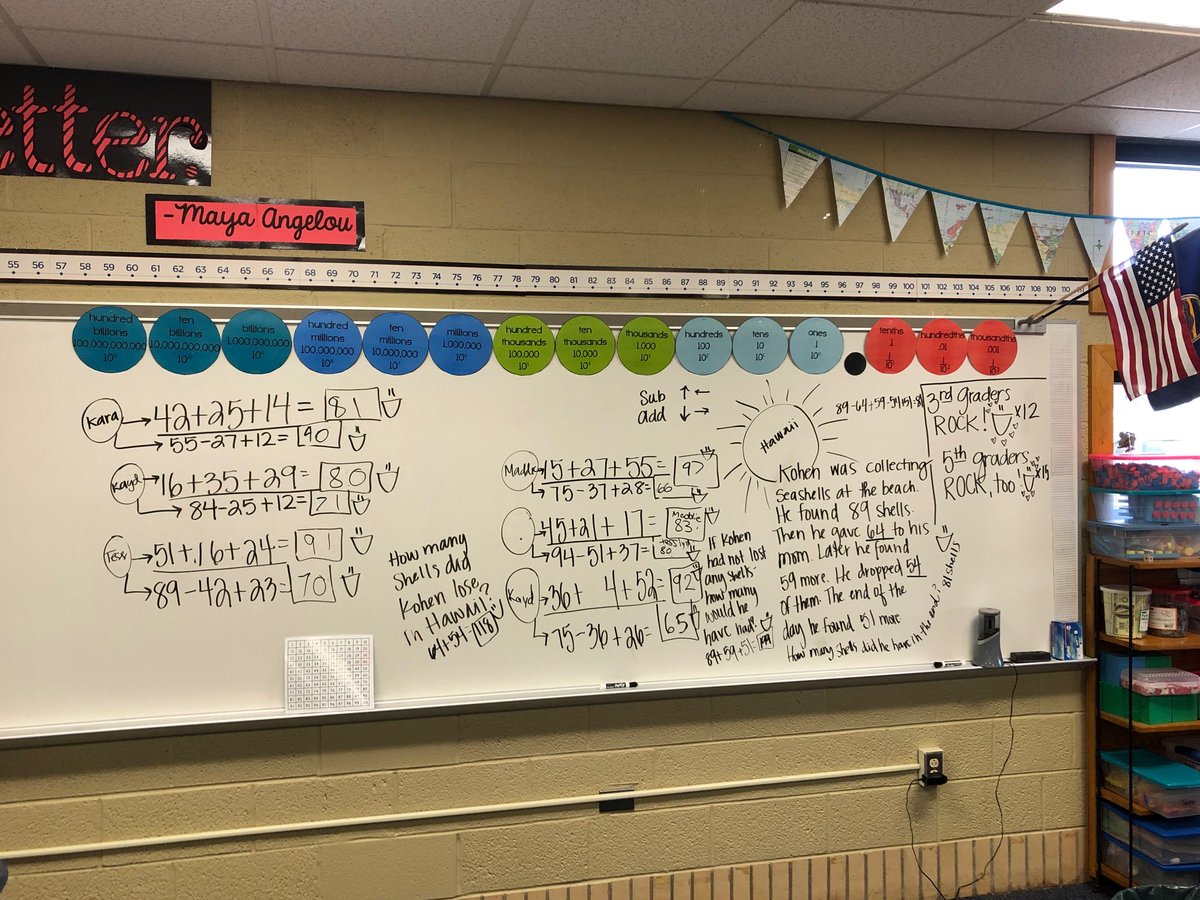 etter.
-Maya Angelou
55 56 57 58 59 60 61 62 63 64 65 66 67 68 69 70 71 72 73 74 75 76 77 78 79 80 81 82 83 84 85 86 87 88 89 90 91 92 93 94 95 96 97 98 99 100 101 102 103 104 105 106 107 108 109 110
hundred billions 100,000,000,000 10¹¹
ten billions 10,000,000,000 10¹⁰
billions 1,000,000,000 10⁹
hundred millions 100,000,000 10⁸
ten millions 10,000,000 10⁷
millions 1,000,000 10⁶
hundred thousands 100,000 10⁵
ten thousands 10,000 10⁴
thousands 1,000 10³
hundreds 100 10²
tens 10 10¹
ones 1 10⁰
tenths .1 1/10¹
hundredths .01 1/10²
thousandths .001 1/10³
Kara
42+25+14=81
55-27+12=40
Kayd
16+35+29=80
84-25+12=71
Tess
51+16+24=91
89-42+23=70
How many
shells did
Kohen lose?
In Hawaii?
64+54=118
Sub ↑ ←
add ↓ →
Maddie
15+27+55=97
75-37+28=66
45+21+17=83
94-51+37=80
Kayd
36+4+52=92
75-36+26=65
If Kohen
had not lost
any shells
how many
would he
have had?
89+59+51=199
Hawaii
89-64+59-54+51=81
Kohen was collecting
Seashells at the beach.
He found 89 shells.
Then he gave 64 to his
mom. Later he found
59 more. He dropped 54
of them. The end of the
day he found 51 more
How many shells did he have in the end? 81 shells
3rd graders
ROCK! x12
5th graders
ROCK, too! x15